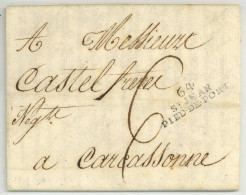 A Messieurs
Castel freres
Negts.
64
ST JEAN
PIED-DE-PORT
6
a Carcassonne